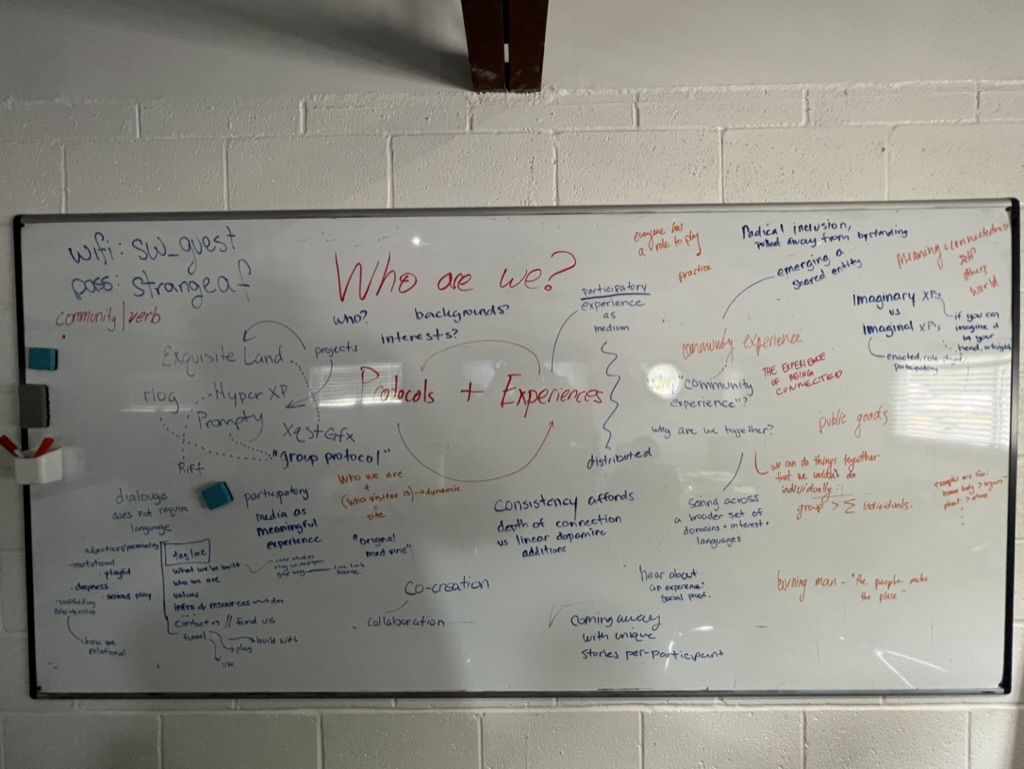 wifi: sw_guest
pass: strangeaf
community | verb
Who are we?
who?
backgrounds?
interests?
participatory
experience
as
medium
distributed
everyone has
a role to play
practice
Radical inclusion,
pulled away from bystanding
emerging a
shared entity
Meaning = connectedness
self
other
world
Imaginary XPs
vs
imaginal XPs,
if you can
imagine it
in your
head,
enacted, role
participatory
Exquisite Land
projects
rlog
Hyper XP
Prompty
XqstGfx
"group protocol"
Rift
Protocols + Experiences
community experience
why "community
experience"?
THE EXPERIENCE
OF BEING
CONNECTED
why are we together?
public goods
we can do things together
that we couldn't do
individually
group > Σ individuals.
seeing across
a broader set of
domains + interest +
languages
dialouge
does not require
language
participatory
media as
meaningful
experience
who we are
+
(who visitor is) → dynamic
=
site
"original
mind vine"
Consistency affords
depth of connection
vs linear dopamine
additions
adjectives/personality
invitational
playful
deepness
serious play
how we
relational
tag line
what we've built
who we are
values
infra & resources
contact us // fund us
funnel
build with
play
use
case studies
Co-creation
collaboration
hear about
an experience?
social proof.
coming away
with unique
stories per-participant
burning man - "the people make
the place"